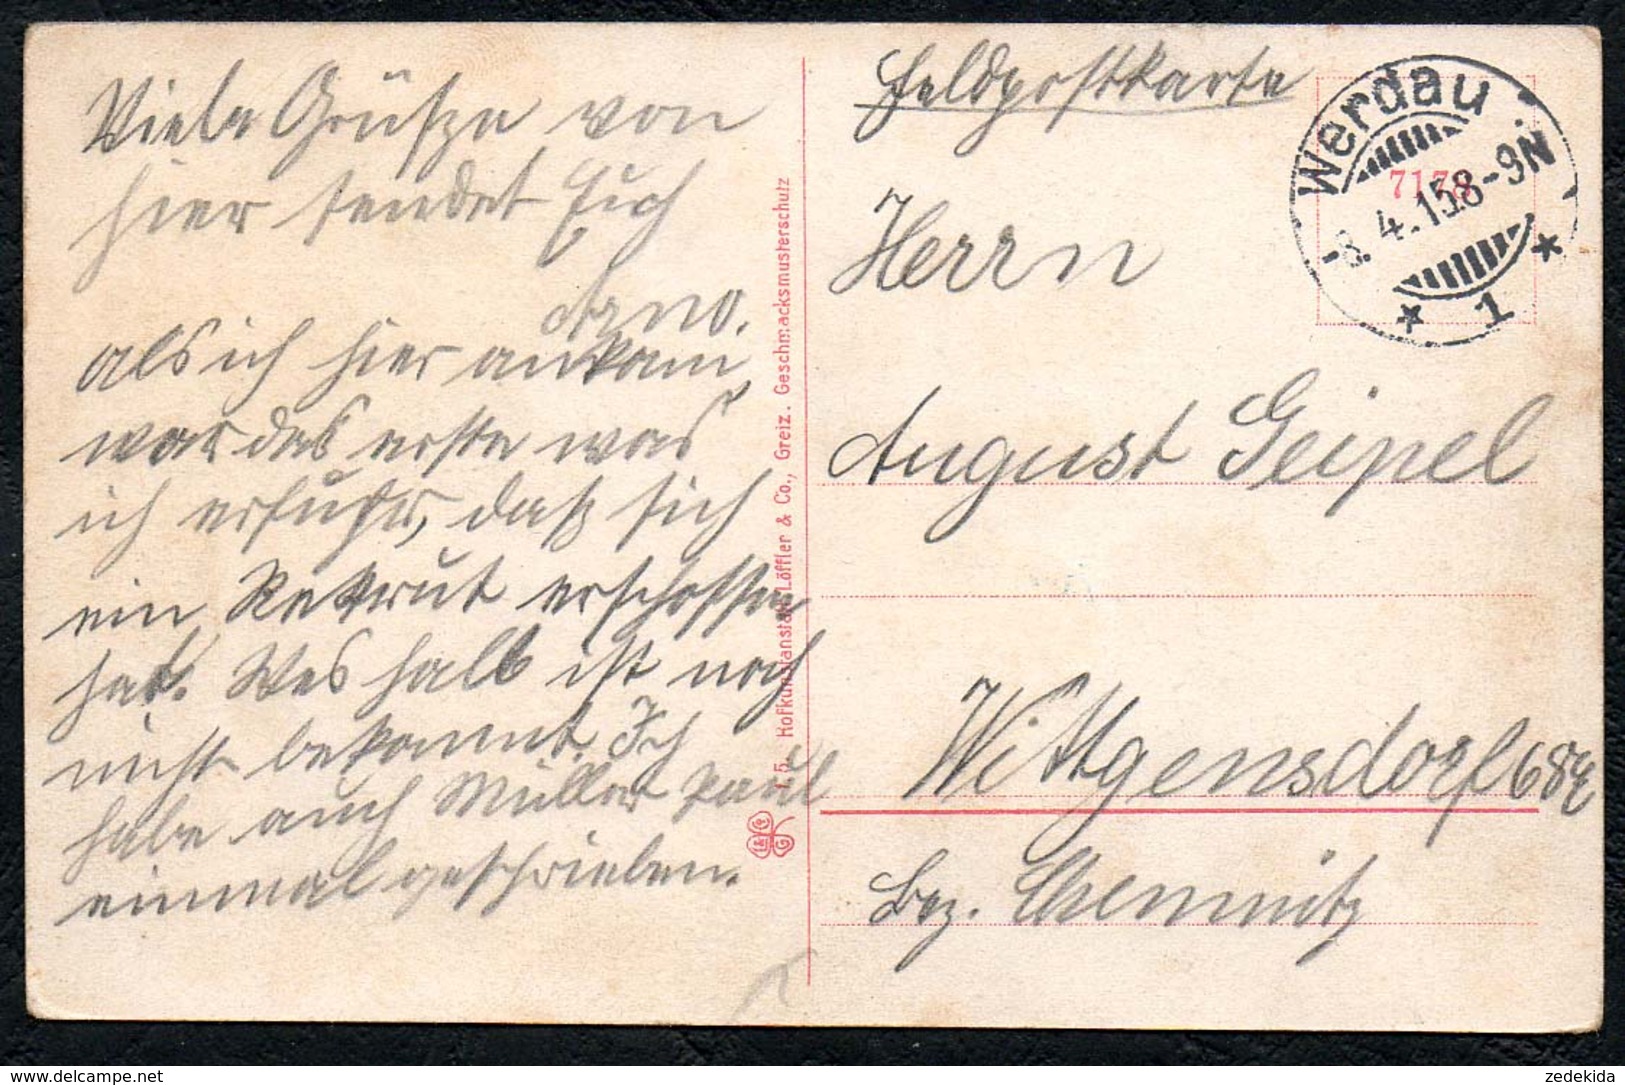 Viele Grüsze von
hier sendet Euch
Arno.
als ich hier ankam,
war das erste was
ich erfuhr, daß sich
ein Rekrut erschossen
hat. Wes halb ist noch
nicht bekannt. Ich
habe auch Müller Paul
einmal geschrieben.
T. 5. Hofkunstanstalt Löffler & Co., Greiz. Geschmacksmusterschutz
L & Co G
Feldpostkarte
Werdau
-8. 4. 15. 8-9N
* 1 *
7178
Herrn
August Geipel
Wittgensdorf 68E
Bez. Chemnitz
zedekida